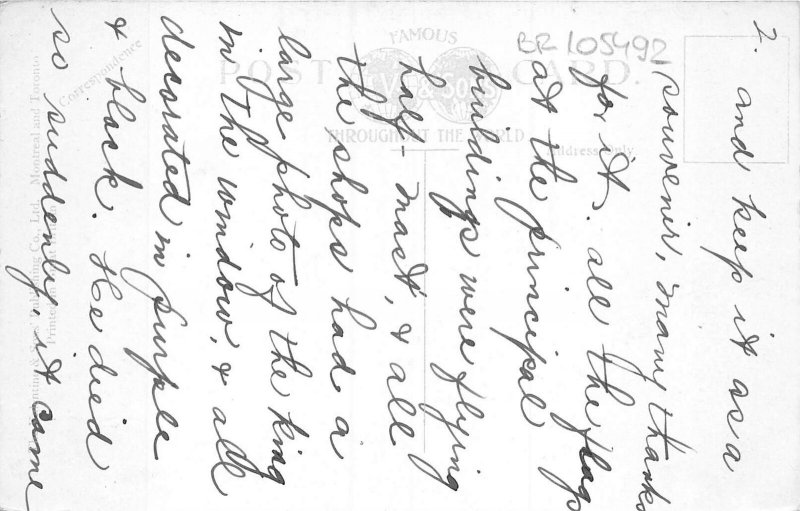 2.
and keep it as a
souvenir, many thanks
for it. all the flags
at the principal
buildings were flying
half-mast, & all
the shops had a
large photo of the king
in the window, & all
decorated in purple
& black. He died
so suddenly, it came
BR 105492
FAMOUS
POST CARD.
& SONS
THROUGHOUT THE WORLD
Address Only
Correspondence
Publishing Co., Ltd. Montreal and Toronto